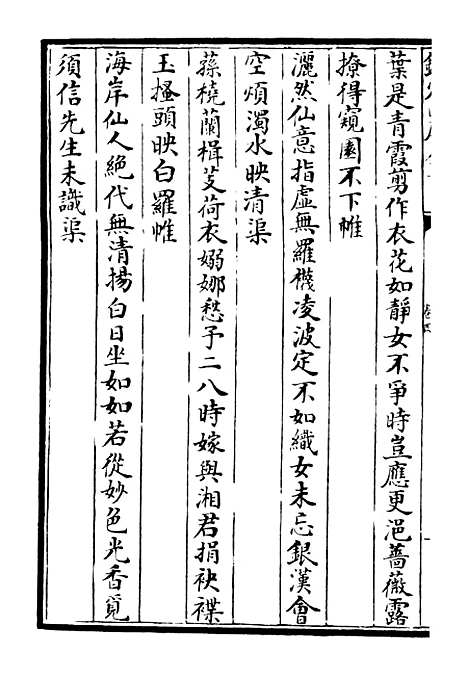 葉是青霞剪作衣花如靜女不爭時豈應更浥薔薇露
撩得窺園不下帷
灑然仙意指虛無羅襪凌波定不如織女未忘銀漢會
空煩濁水映清渠
蓀橈蘭楫芰荷衣嫋娜愁予二八時嫁與湘君捐袂褋
玉搔頭映白羅帷
海岸仙人絕代無清揚白日坐如如若從妙色光香覓
須信先生未識渠